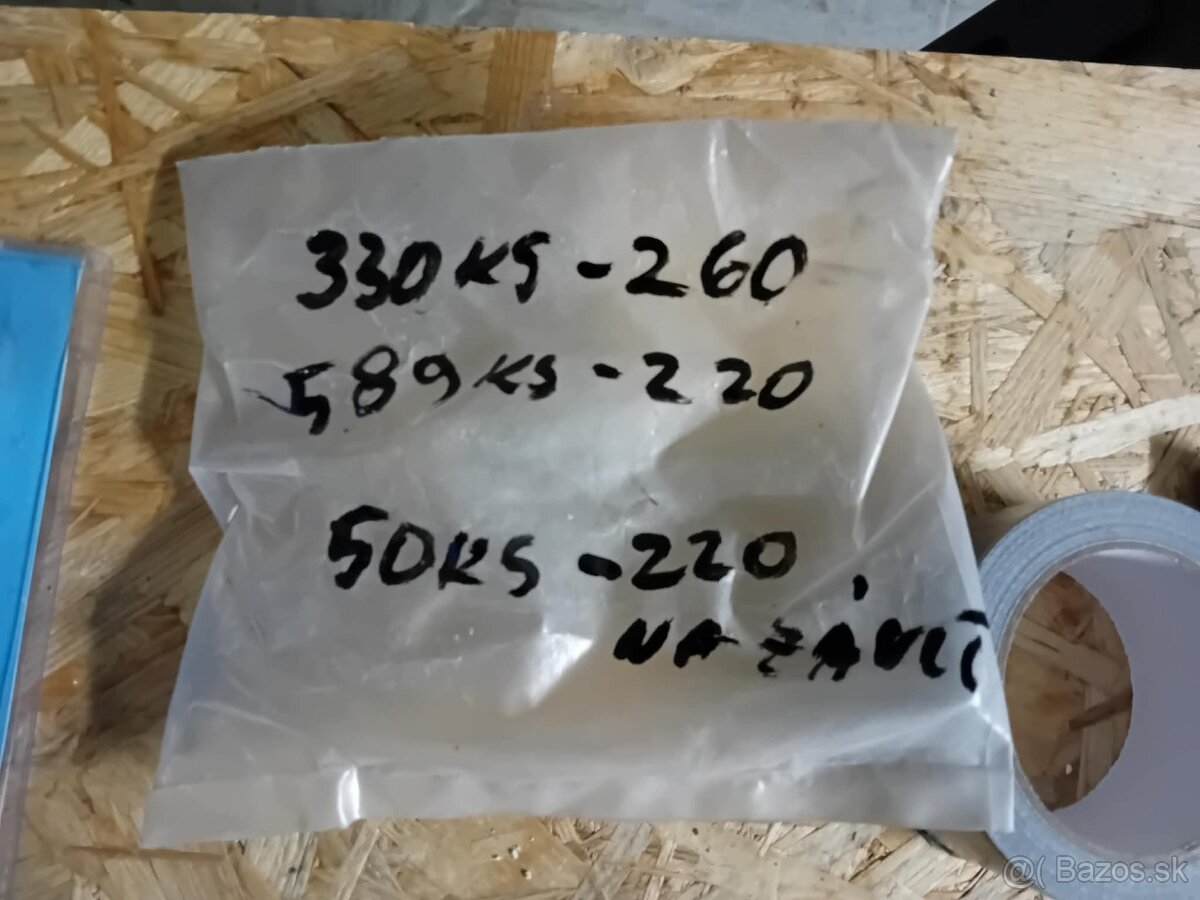 330KS-260
589KS-220
50KS-220
NA ZÁVIT
@( Bazos.sk